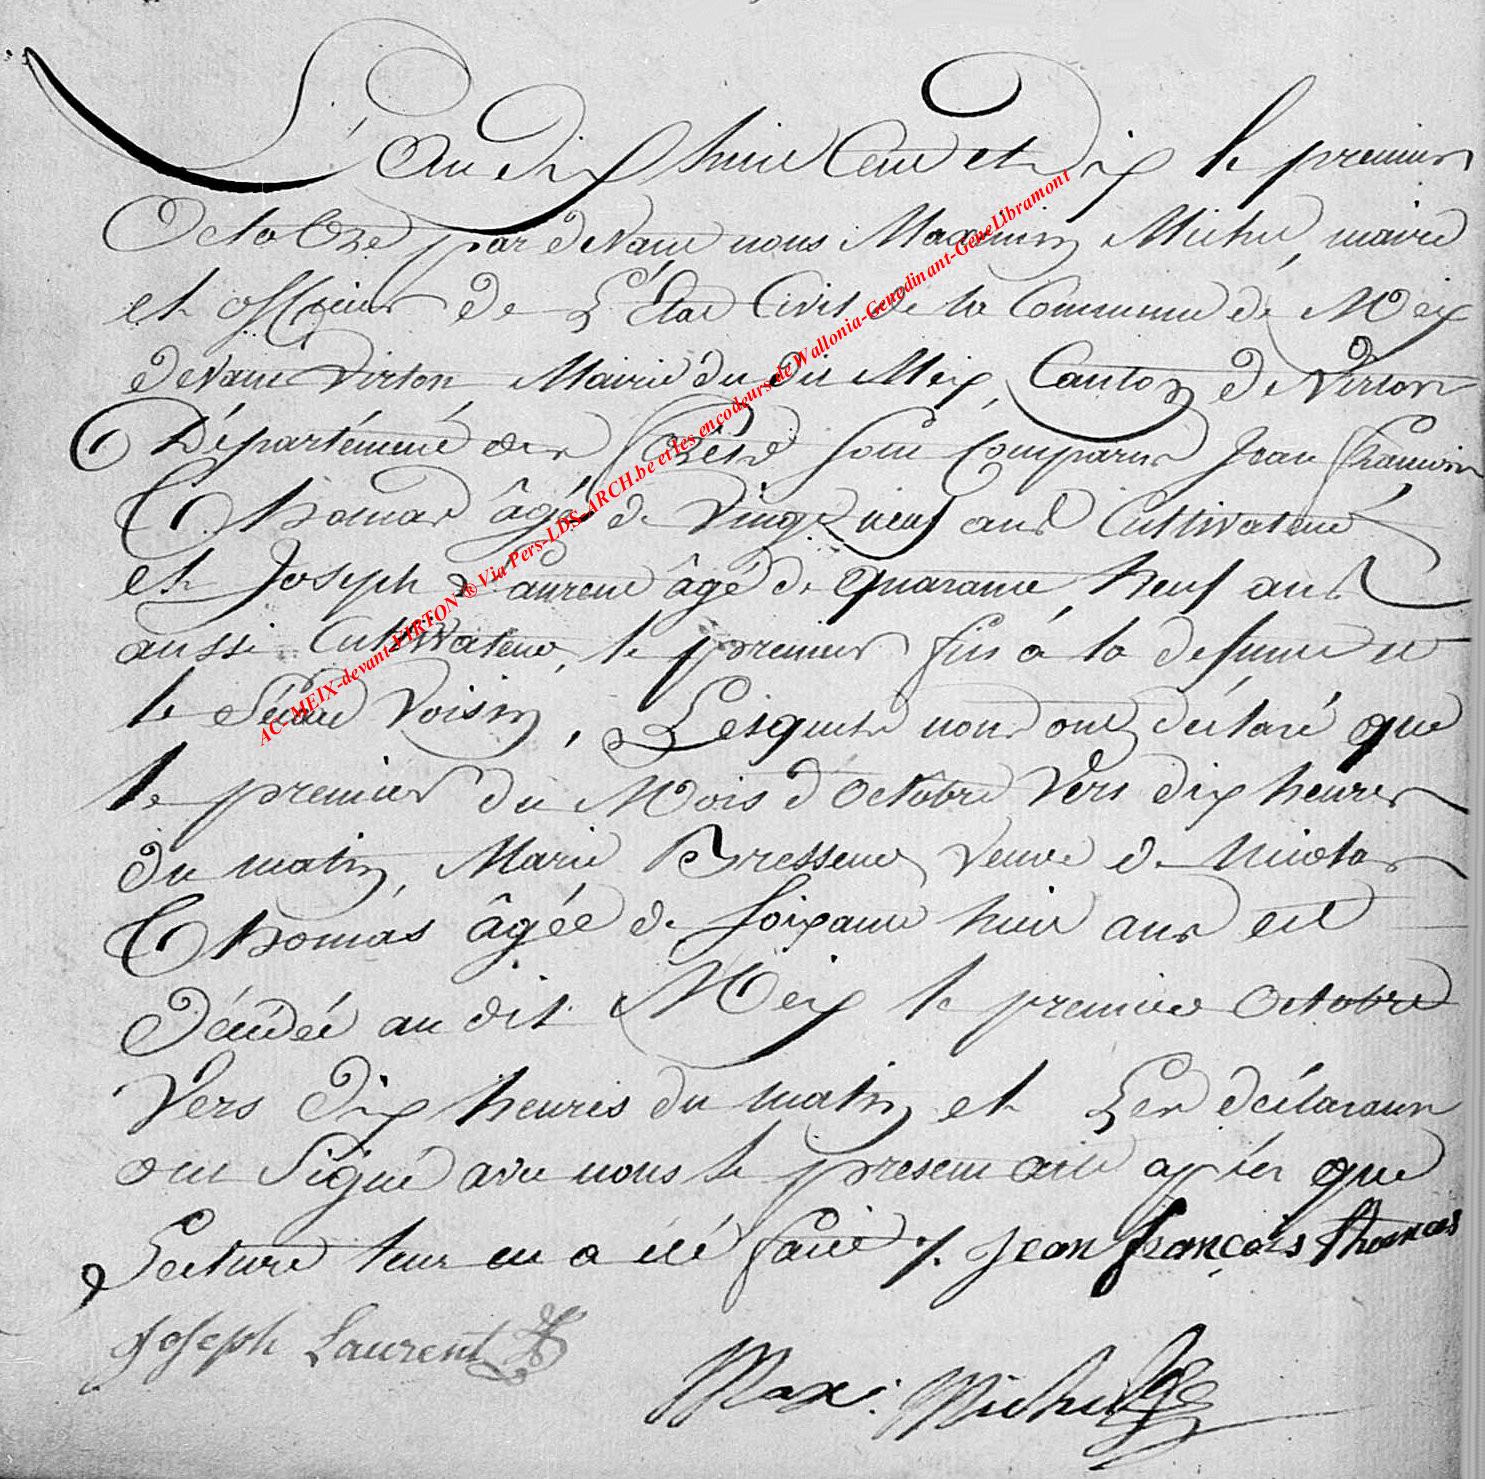 L'An dix huit Cent et dix le premier
Octobre par devant nous Maximin Michel, maire
et officier de L'Etat Civil de la Commune de Meix
devant Virton Mairie du dit Meix, Canton de Virton
Département des forêts sont comparus Jean françois
Thomas âgé de Vingt neuf ans Cultivateur
et Joseph Laurent âgé de quarante neuf ans
aussi Cultivateur, le premier fils à la defunte et
le second Voisin, Lesquels nous ont déclaré que
le premier du Mois d'octobre vers dix heures
du matin, Marie Veuve de Nicolas
Thomas âgée de soixante huit ans est
Décédée au dit Meix le premier Octobre
vers dix heures du matin et Les déclarans
ont signé avec nous le present acte après que
Lecture leur en a été faite ./. jean françois thomas
joseph Laurent
Max: Michel
AC-MEIX-devant-VIRTON ® Via Pers-LDS-ARCH.be et les encodeurs de Wallonia-Genedinant-GeneLibramont